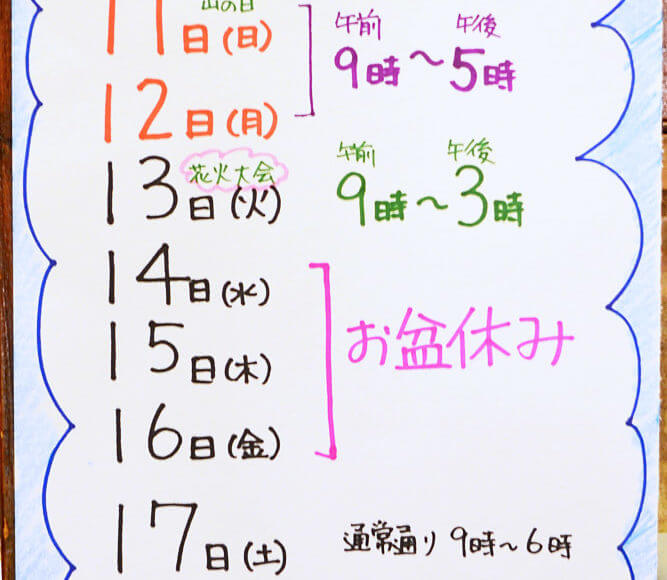 山の日
11日(日)
12日(月)
午前 午後
9時〜5時
花火大会
13日(火)
午前 午後
9時〜3時
14日(水)
15日(木)
16日(金)
お盆休み
17日(土) 通常通り 9時〜6時